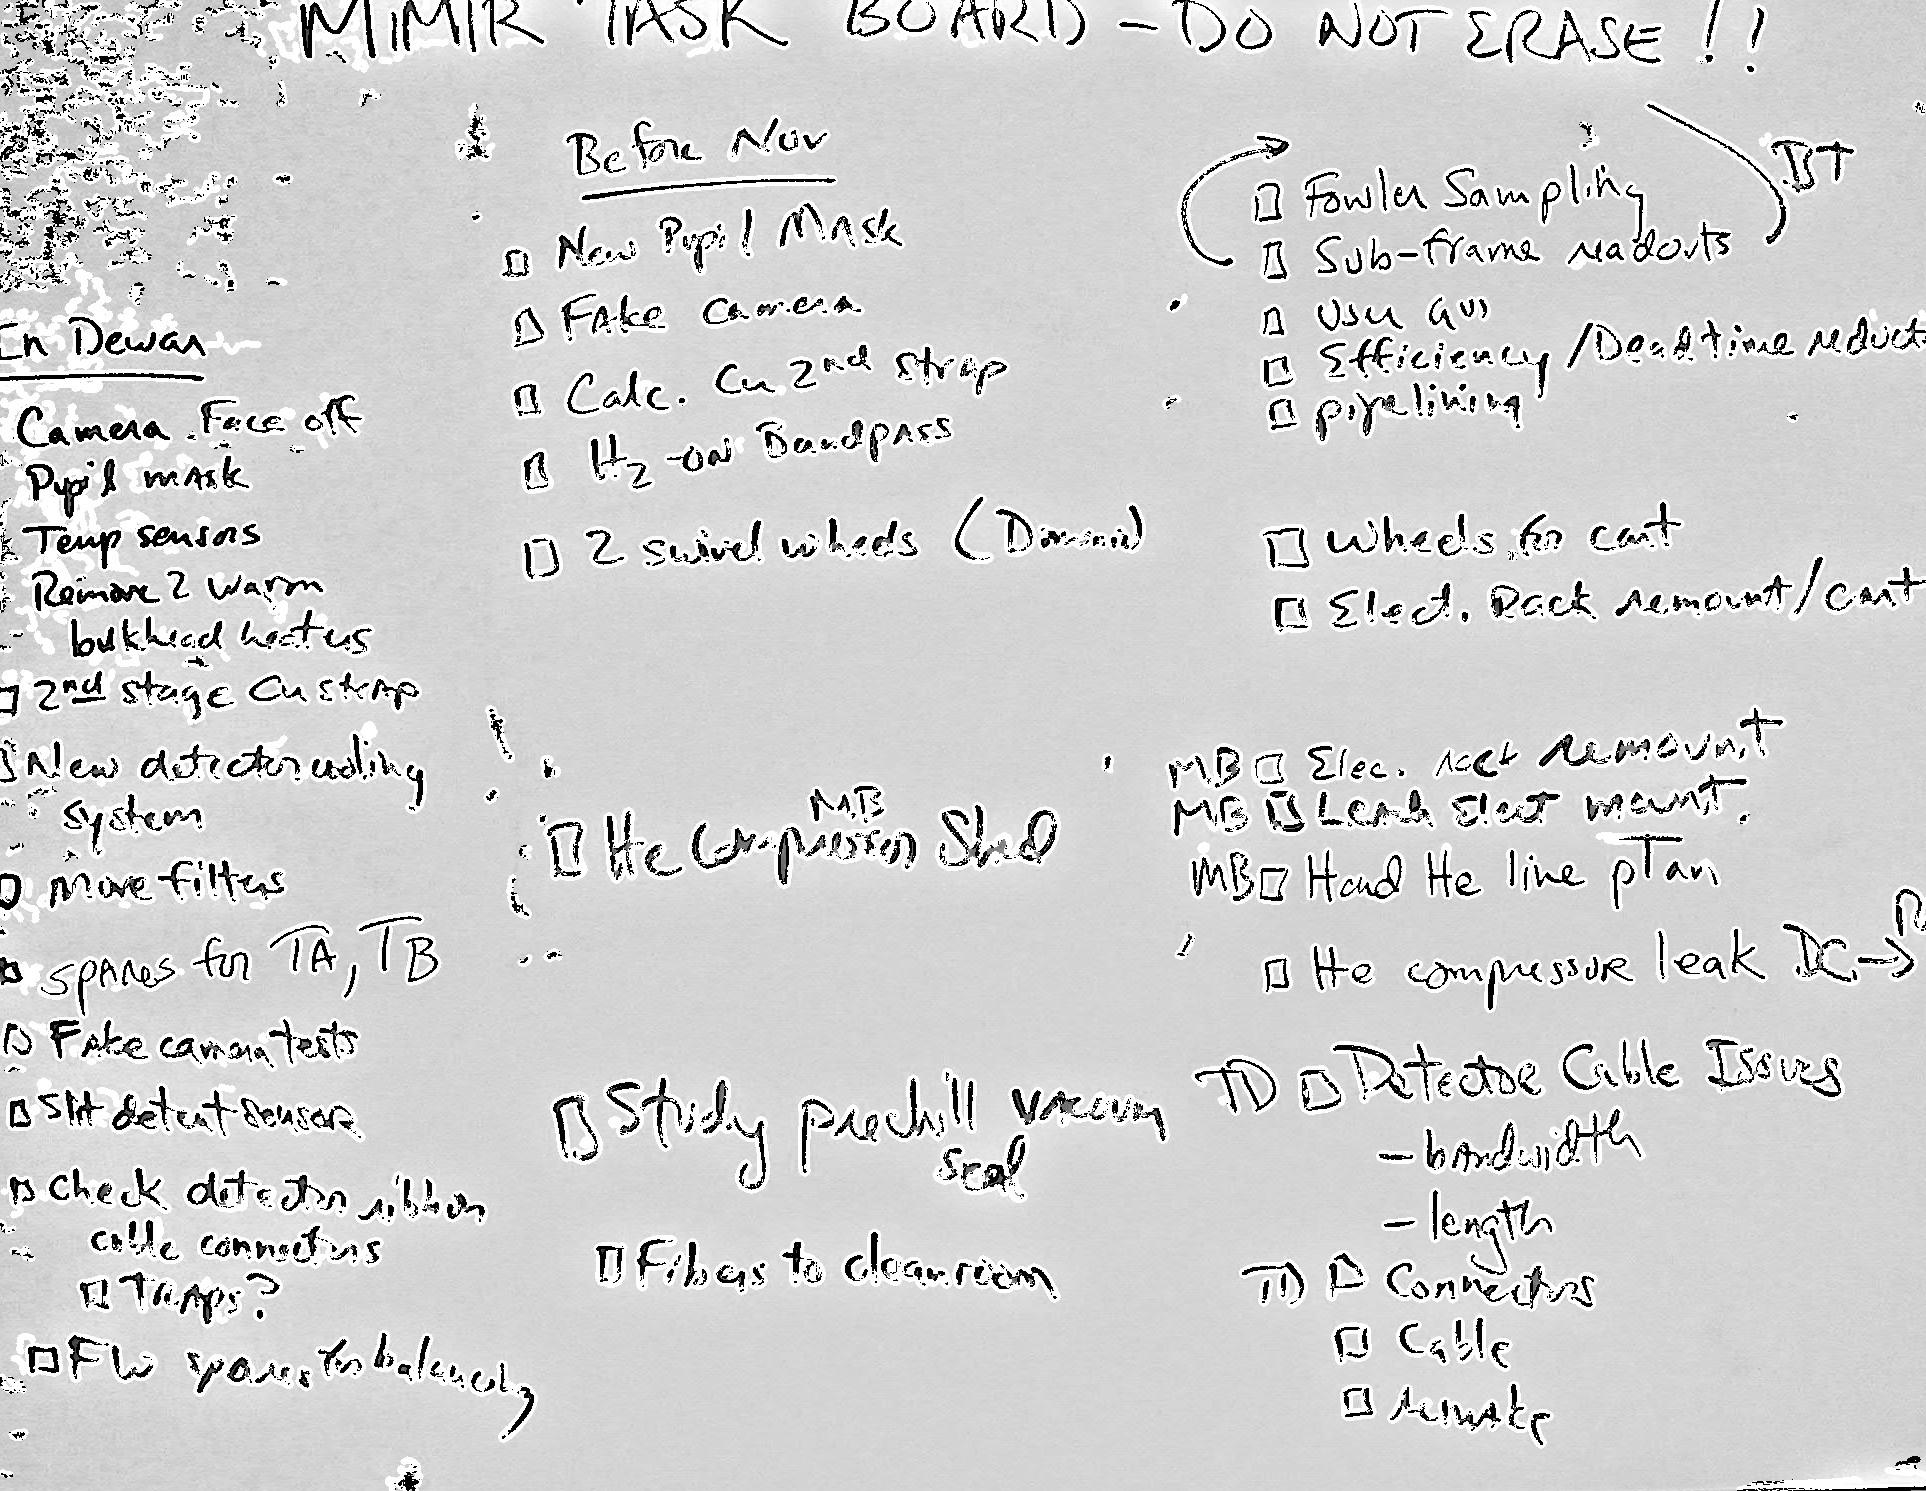 MIMIR TASK BOARD - DO NOT ERASE!!
In Dewar
Camera Face off
Pupil mask
Temp sensors
Remove 2 warm
bulkhead heaters
2nd stage Cu strap
New detector cooling
system
More filters
spares for TA, TB
Fake camera tests
Slit detent sensors
Check detector ribbon
cable connectors
Traps?
FW spares for balancing
Before Nov
New Pupil Mask
Fake camera
Calc. Cu 2nd strap
H2-ON Bandpass
2 swivel wheels
MB
He Compressor Shed
Study prechill vacuum
seal
Fibers to cleanroom
BT
Fowler Sampling
Sub-frame readouts
User GUI
Efficiency/Deadtime reduct
pipelining
Wheels for cart
Elect. Rack remount/cart
MB Elec. rack remount
MB Leach Elect mount.
MB Hard He line plan
He compressor leak DC→
TD Detector Cable Issues
- bandwidth
- length
TD Connectors
Cable
remake